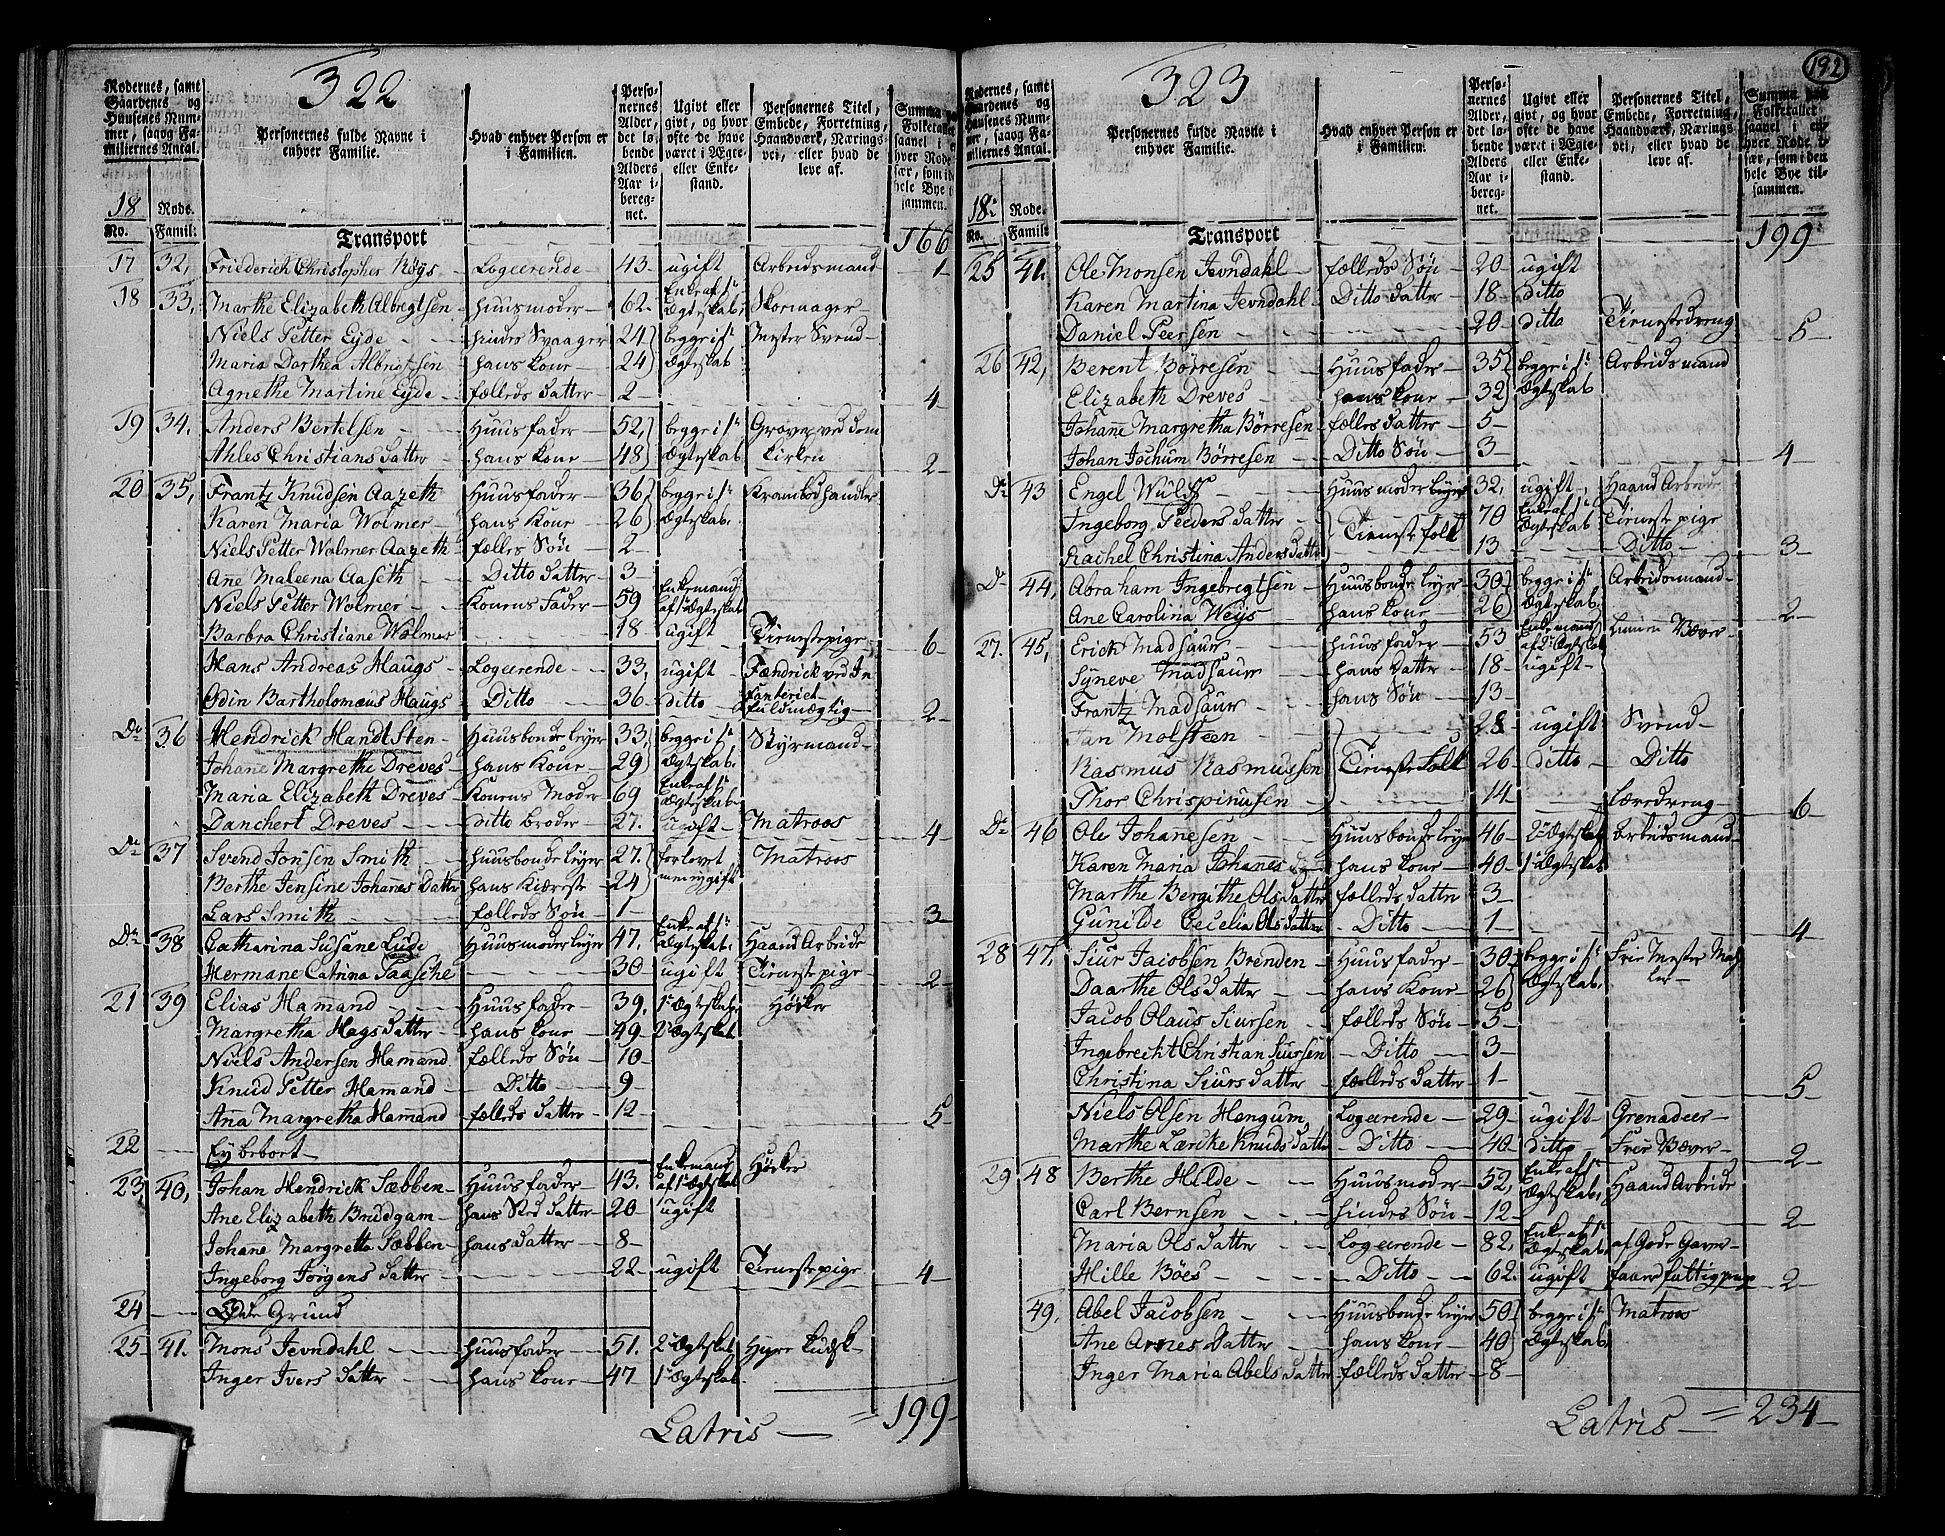 322
Rodernes, samt Gaardenes og Huusenes Nummer, saavog Familiernes Antal.
Personernes fulde Navne i enhver Familie.
Hvad enhver Person er i Familien.
Personernes Alder, det løbende Alders Aar iberegnet.
Ugivt eller givt, og hvor ofte de have været i Ægte- eller Enkestand.
Personernes Titel, Embede, Forretning, Haandværk, Næringsvei, eller hvad de leve af.
18 Rode.
No. Famil:
Transport 166
17 32, Friederich Christopher Røys Logerende 43 ugift Arbeidsmand 1
18 33, Marthe Elizabeth Albregtsen huusmoder 62 Enke af 1te Ægteskab Skomager
Niels Petter Eyde hindes Svaager 24 begge i 1te Mester Svend
Maria Dorthea Albrigtsen hans Kone 24 Ægteskab
Agnethe Martine Eyde fælleds Datter 2 4
19 34. Anders Bertelsen Huusfader 52, begge i 1te Graver ved Dom
Ahles Christians Datter hans Kone 48 Ægteskab Kirken 2
20 35, Frantz Knudsen Aazeth Huusfader 36 begge i 1te Krambodhandler
Karen Maria Wolmer hans Kone 26 Ægteskab.
Niels Petter Wolmer Aazeth fælles Søn 2
Ane Maleena Aaseth Ditto Datter 3
Niels Petter Wolmer Konens Fader 59 Enkemand af 1te Ægteskab
Barbra Christiane Wolmer 18 ugift Tienestepige 6
Hans Andreas Haugs Logerende 33, ugift Fændrick ved In
Odin Bartholomæus Haugs Ditto 36 ditto fanteriet Fuldmægtig 2
Do 36 Hendrick Handt Sten Huusbonde leyer 33, begge i 1te Styrmand
Johane Margrethe Dreves hans Kone 29 Ægteskab.
Maria Elizabeth Dreves Konens Moder 69 Enke af 1te Ægteskab
Danchert Dreves ditto Broder 27. ugift Matroos 4
Do 37 Svend Jonsen Smith huusbonde leyer 27. forlovet Matroos
Berthe Jensine Johannes Datter hans Kiæreste 24 men ugift
Lars Smith fælleds Søn 1 3
Do 38 Catharina Susane Lude Huusmoder leyer 47, Enke af 1te Ægteskab. Haand Arbeide
Hermane Catrina Paasche 30 ugift Tienestepige 2
21 39 Elias Hamand Huusfader 39, 1te Ægteskab Høker
Margretha Hags Datter hans Kone 49. 2det Ægteskab
Niels Andersen Hamand fælleds Søn 10
Knud Petter Hamand Ditto 9
Ana Margretha Hamand fælleds Datter 12 5
22 Ey beboet
23, 40, Johan Hendrick Sæbben Huusfader 43. Enkemand af 1te Ægteskab Høker
Ane Elizabeth Brudgam hans Sted Datter 20 ugift
Johane Margretta Sæbben hans Datter 8
Ingeborg Jørgens Datter 22 ugift Tienestepige 4
24 Øde Grund
25 41. Mons Jevndahl Huusfader 51. 2det Ægteskab Hyre Kudsk
Inger Ivers Datter hans Kone 47 1te Ægteskab.
Latris = 199
323
192
Rodernes, samt Gaardenes og Huusenes Nummer, saavog Familiernes Antal.
Personernes fulde Navne i enhver Familie.
Hvad enhver Person er i Familien.
Personernes Alder, det løbende Alders Aar iberegnet.
Ugivt eller givt, og hvor ofte de have været i Ægte- eller Enkestand.
Personernes Titel, Embede, Forretning, Haandværk, Næringsvei, eller hvad de leve af.
Summa paa Folketallet saavel i enhver Rode især, som i den hele Bye tilsammen.
18 Rode.
No. Famil:
Transport 199
25 41. Ole Monsen Jevndahl fælleds Søn 20 ugift
Karen Martina Jevndahl Ditto Datter 18 ditto
Daniel Peersen 20 ditto Tienestedreng 5
26 42, Berent Børresen Huusfader 35 begge i 1te Arbeidsmand
Elizabeth Dreves hans Kone 32 Ægteskab
Johane Margretha Børresen fælleds Datter 5
Johan Jochum Børresen Ditto Søn 3 4
Do 43 Engel Huusmoder leyer 32, ugift Haand Arbeide
Ingeborg Peeders Datter Tieneste folk 70 Enke af 1te Ægteskab Tieneste pige
Rachel Christina Anders Datter 13 Ditto 3
Do 44, Abraham Ingebregtsen Huusbonde leyer 30 begge i 1te Arbeidsmand
Ane Carolina Weys hans Kone 26 Ægteskab. 2
27. 45, Erick Madsaur huusfader 53 Enkemand af 2det Ægteskab Linnen Væver
Syneve Madsaur hans Datter 18 ugift
Frantz Madsaur hans Søn 13
Jan Molsteen 28 ugift Svend
Rasmus Rasmussen Tieneste Folk 26 ditto Ditto
Thor Chrispinusen 14 Læredreng 6
Do 46 Ole Johanesen Huusbonde leyer 46 2det Ægteskab Arbeidsmand
Karen Maria Johannes D. hans Kone 40 1te Ægteskab
Marthe Bergithe Ols Datter fælleds Datter 3
Gunilde Cecelia Ols Datter Ditto 1 4
28 47, Siur Jacobsen Brenden Huusfader 30 begge i 1te Frie Mester Mah
Daarthe Ols Datter hans Kone 26 Ægteskab. ler
Jacob Olaus Siursen fælleds Søn 5
Ingebrecht Christian Siursen Ditto 3
Christina Siurs Datter fælleds Datter 1 5
Niels Olsen Hengum Logerende 29 ugift Grenadeer
Marthe Lærcke Knuds Datter Ditto 40 ditto Frie Væver 2
29 48 Berthe Hilde Huusmoder 52, Enke af 1te Ægteskab. Haand Arbeide
Carl Bernsen hindes Søn 12 2
Maria Ols Datter Logerende 82, Enke af 1te Ægteskab. af Gode Gaver
Hille Böes Ditto 62. ugift faaer fattigpenge 2
49, Abel Jacobsen Huusbonde leyer 50 begge i 1te Matros
Ane Arnes Datter hans Kone 40 Ægteskab.
Inger Maria Abels Datter fælleds Datter 8
Latris = 234